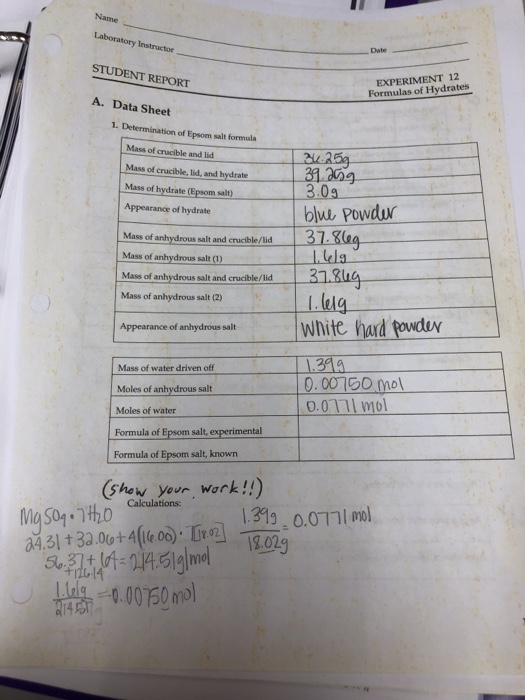 Name
Laboratory Instructor
Date
STUDENT REPORT
EXPERIMENT 12
Formulas of Hydrates
A. Data Sheet
1. Determination of Epsom salt formula
Mass of crucible and lid 36.25g
Mass of crucible, lid, and hydrate 39.25g
Mass of hydrate (Epsom salt) 3.0g
Appearance of hydrate blue powder
Mass of anhydrous salt and crucible/lid 37.86g
Mass of anhydrous salt (1) 1.61g
Mass of anhydrous salt and crucible/lid 37.86g
Mass of anhydrous salt (2) 1.61g
Appearance of anhydrous salt white hard powder
Mass of water driven off 1.39g
Moles of anhydrous salt 0.00750 mol
Moles of water 0.0771 mol
Formula of Epsom salt, experimental
Formula of Epsom salt, known
(show your work!!)
Calculations:
MgSO4·7H2O
24.31+32.06+4(16.00)· 7[18.02]
56.37+64=214.51g/mol
+126.14
1.61g
214.51 =0.00750 mol
1.39g = 0.0771 mol
18.02g